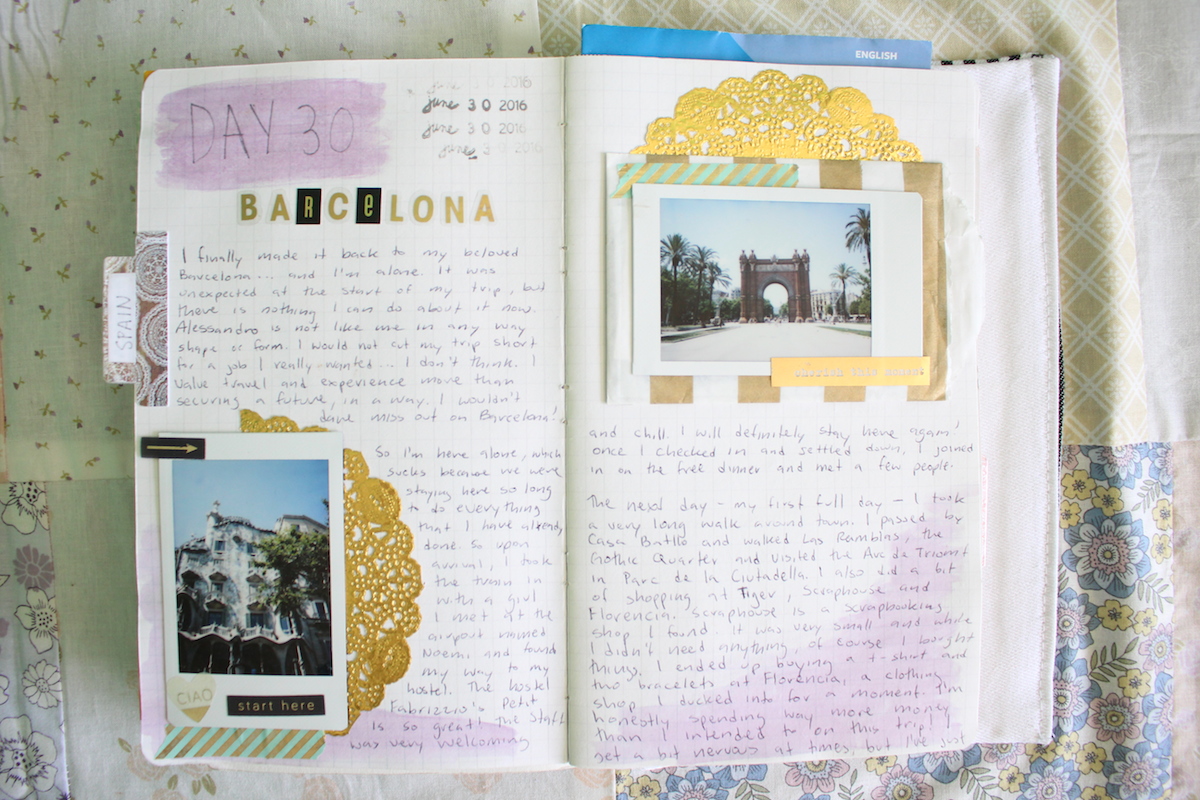 ENGLISH
DAY 30
june 30 2016
june 30 2016
june 30 2016
june 30 2016
BARCELONA
SPAIN
I finally made it back to my beloved
Barcelona... and I'm alone. It was
unexpected at the start of my trip, but
there is nothing I can do about it now.
Alessandro is not like me in any way
shape or form. I would not cut my trip short
for a job I really wanted... I don't think. I
value travel and experience more than
securing a future, in a way. I wouldn't
dare miss out on Barcelona!
So I'm here alone, which
sucks because we were
staying here so long
to do everything
that I have already
done. So upon
arrival, I took
the train in
with a girl
I met at the
airport named
Noemi and found
my way to my
hostel. The hostel
Fabrizzio's Petit
is so great! The staff
was very welcoming
CIAO
start here
cherish this moment
and chill. I will definitely stay here again!
once I checked in and settled down, I joined
in on the free dinner and met a few people.
The next day - my first full day - I took
a very long walk around town. I passed by
Casa Batllo and walked Las Ramblas, the
Gothic Quarter and visited the Arc de Triomf
in Parc de la Ciutadella. I also did a bit
of shopping at Tiger, Scraphouse and
Florencia. Scraphouse is a scrapbooking
shop I found. It was very small and while
I didn't need anything, of course I bought
things. I ended up buying a t-shirt and
two bracelets at Florencia, a clothing
shop I ducked into for a moment. I'm
honestly spending way more money
than I intended to on this trip! I
get a bit nervous at times, but I've just